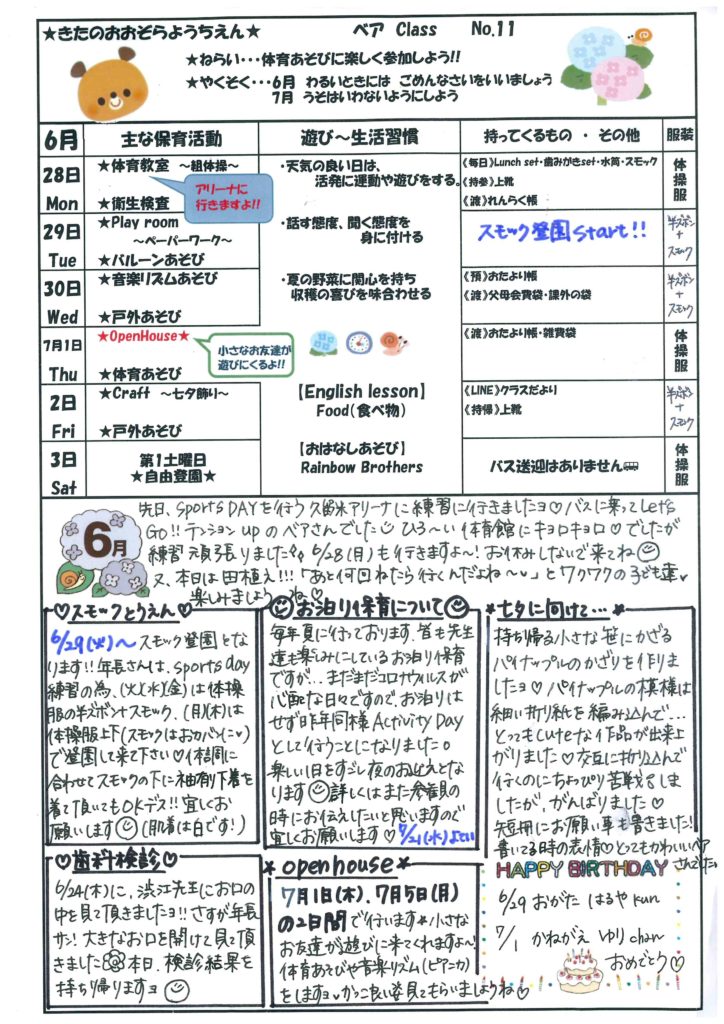 ★きたのおおぞらようちえん★ ベア Class No.11
★ねらい・・・体育あそびに楽しく参加しよう!!
★やくそく・・・6月 わるいときには ごめんなさいをいいましょう
7月 うそはいわないようにしよう
6月 主な保育活動 遊び～生活習慣 持ってくるもの ・ その他 服装
28日 Mon
★体育教室 ～組体操～
アリーナに
行きますよ!!
★衛生検査
・天気の良い日は、
活発に運動や遊びをする。
《毎日》Lunch set・歯みがきset・水筒・スモック
《持参》上靴
《渡》れんらく帳
体操服
29日 Tue
★Play room
～ペーパーワーク～
★バルーンあそび
・話す態度、聞く態度を
身に付ける
スモック登園Start!!
半ズボン
+
スモック
30日 Wed
★音楽リズムあそび
★戸外あそび
・夏の野菜に関心を持ち
収穫の喜びを味合わせる
《預》おたより帳
《渡》父母会費袋・課外の袋
半ズボン
+
スモック
7月1日 Thu
★OpenHouse★
小さなお友達が
遊びにくるよ!!
★体育あそび
《渡》おたより帳・雑費袋
体操服
2日 Fri
★Craft ～七夕飾り～
★戸外あそび
【English lesson】
Food(食べ物)
《LINE》クラスだより
《持帰》上靴
半ズボン
+
スモック
3日 Sat
第1土曜日
★自由登園★
【おはなしあそび】
Rainbow Brothers
バス送迎はありません
体操服
6月
先日、sports DAYを行う久留米アリーナに練習に行きましたョ♡バスに乗ってLet's
Go!!テンションupのベアさんでした ひろ～い体育館にキョロキョロ♡でしたが
練習頑張りました 6/28(月)も行きますよ～!お休みしないで来てね
又、本日は田植え!!!「あと何回ねたら行くんだよね～」とワクワクの子ども達
楽しみましょうね♡
♡スモックとうえん♡
6/29(火)～スモック登園とな
ります!!年長さんは、sports day
練習の為、(火)(水)(金)は体操
服の半ズボン+スモック、(月)(木)は
体操服上下(スモックはおカバイ(ン♡)
で登園して来て下さい♡体調に
合わせてスモックの下に袖有下着を
着て頂いてもOKデス!!宜しくお
願いします (肌着は白です!)
お泊り保育について
毎年夏に行っております、皆も先生
達も楽しみにしているお泊り保育
ですが...まだまだコロナウルスが
心配な日々ですので、お泊りは
せず昨年同様Activity Day
として行うことになりました。
楽しい1日をすごし夜のお迎えとな
ります 詳しくはまた参観の
時にお伝えしたいと思いますので
宜しくお願いします♡7/21(水)よてい
*七夕に向けて...*
持ち帰る小さな笹にかざる
パイナップルのかざりを作りま
したョ♡パイナップルの模様は
細い折り紙を編み込んで...
とってもCuteな作品が出来上
がりました♡交互に折り込んで
行くのにちょっぴり苦戦しま
したが、がんばりました♡
短冊にお願い事も書きました!
書いてる時の表情♡とってもかわいいベア
さんでした
♡歯科検診♡
6/24(木)に、渋江先生にお口の
中を見て頂きましたョ!!さすが年長
サン!大きなお口を開けて見て頂
きました 本日、検診結果を
持ち帰りますョ
*openhouse*
7月1日(木)、7月5日(月)
の2日間で行います*小さな
お友達が遊びに来てくれますよ～!
体育あそびや音楽リズム(ピアニカ)
をしますョ かっこ良い姿見てもらいましょうね♡
HAPPY BIRTHDAY
6/29 おがた はるや kun
7/1 かねがえ ゆり chan
おめでとう♡